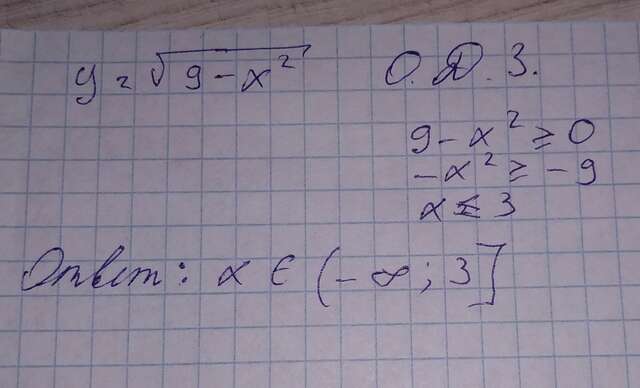 y = √(9 - x²) О.Д.З.
9 - x² ≥ 0
-x² ≥ -9
x ≤ 3
Ответ: x ∈ (-∞; 3]